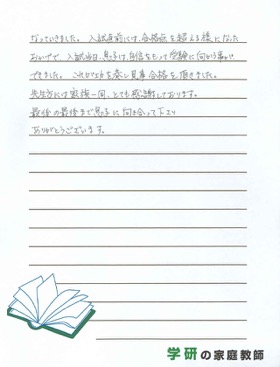 なっていきました。入試直前には、合格点を超える様になった
おかげで、入試当日、息子は自信をもって受験に向かう事が
できました。これが功を奏し見事合格を頂きました。
先生方には家族一同、とても感謝しております。
最後の最後まで息子に向き合って下さり
ありがとうございます。
学研の家庭教師